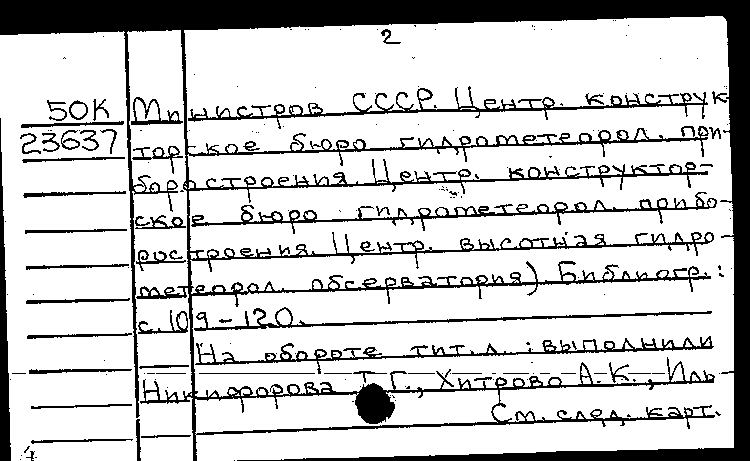 2
50К Министров СССР. Центр. конструк-
23637 торское бюро гидрометеорол. при-
боростроения. Центр. конструктор-
ское бюро гидрометеорол. прибо-
ростроения. Центр. высотная гидро-
метеорол. обсерватория) Библиогр.:
с. 109-120.
На обороте тит. л.: выполнили
Никифорова Т.Г., Хитрово А.К., Иль-
См. след. карт.